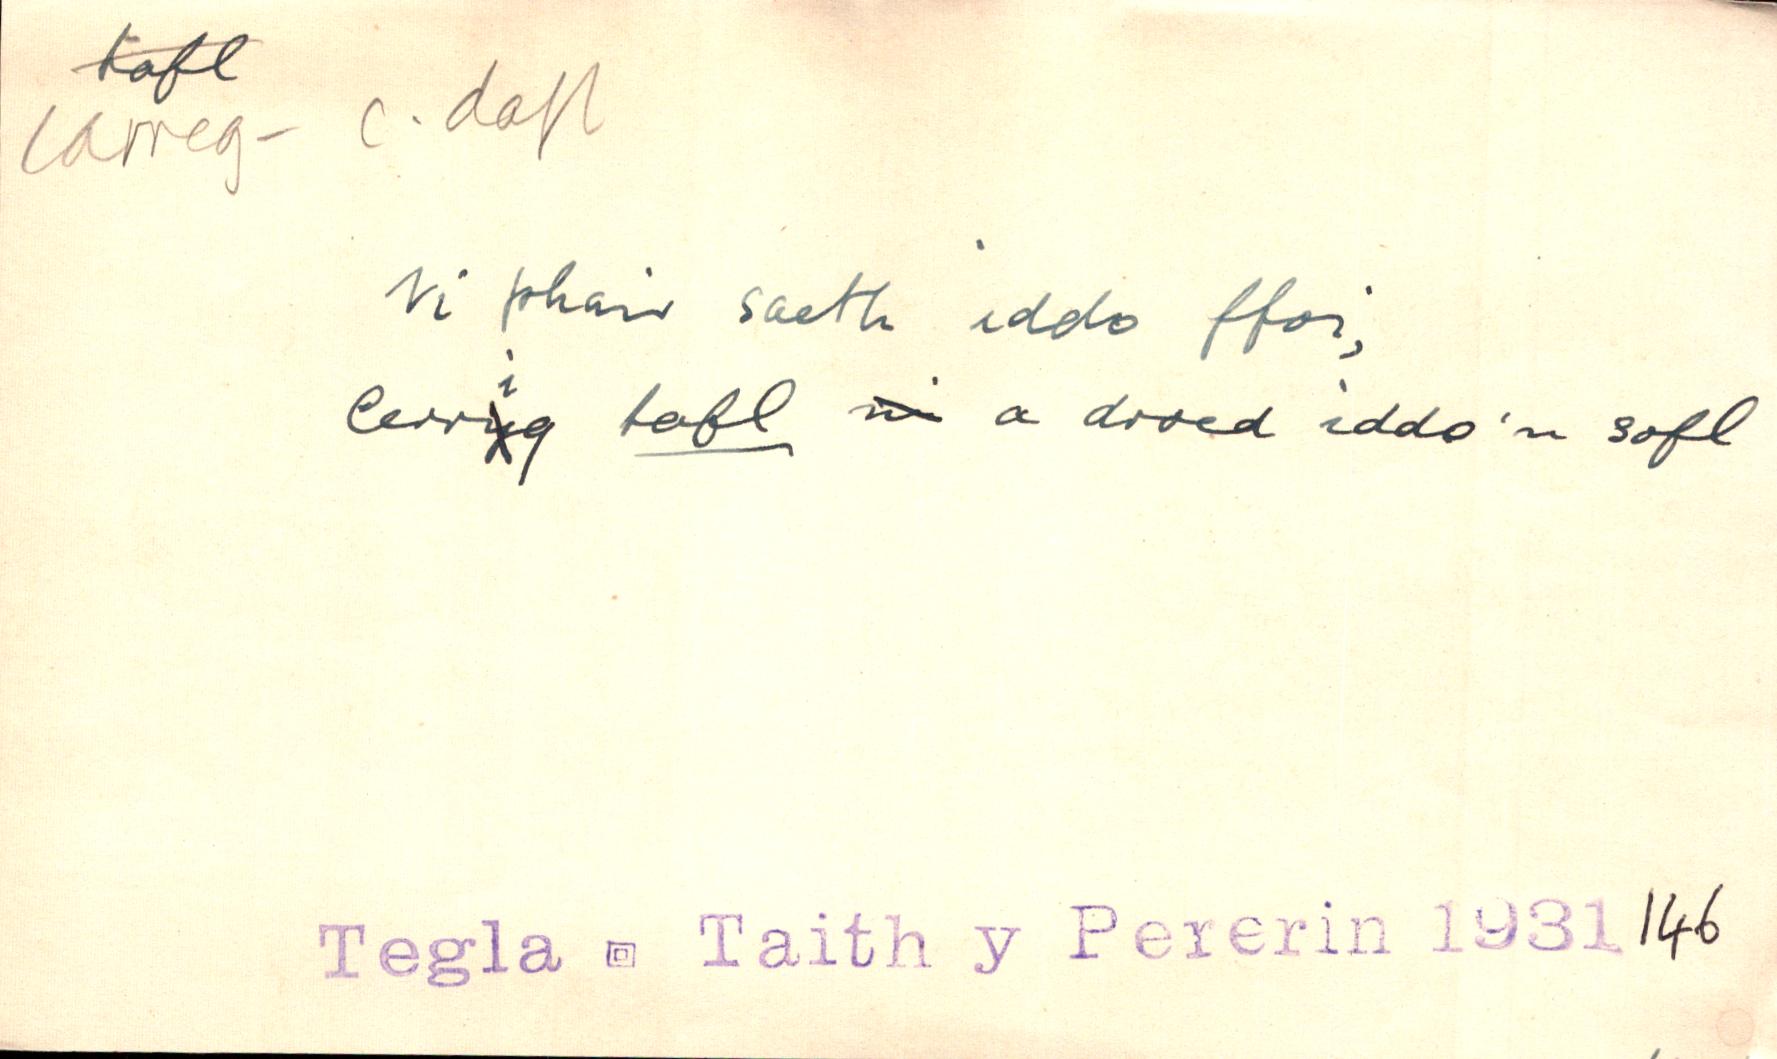 tafl
carreg - c. dafl
Ni phair saeth iddo ffoi,
Cerrig tafl a droed iddo'n sofl
Tegla Taith y Pererin 1931 146